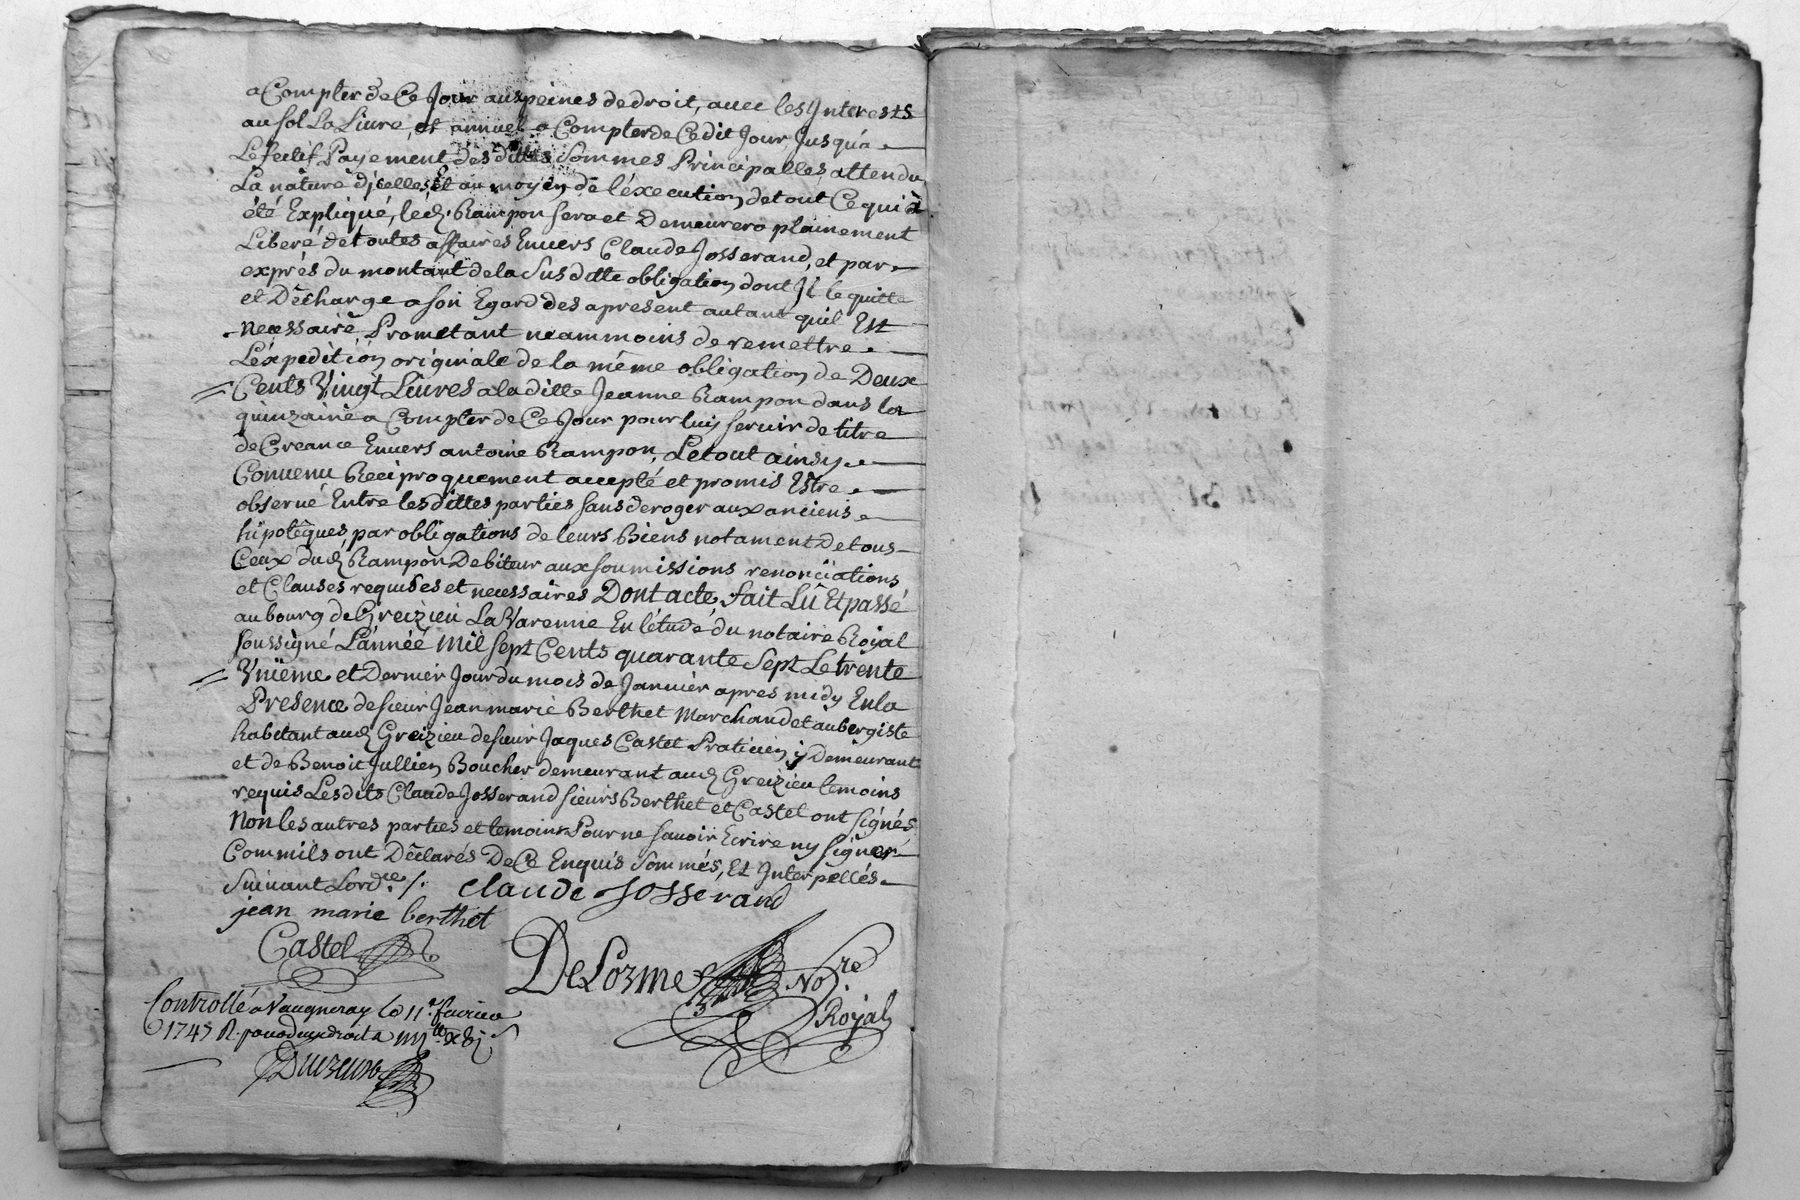 a Compter de Ce Jour aux peines de droit, avec les Interests
au sol La Livre, et annuel a Compter de Cedit Jour, Jusqu'a
Lefectif Payement des dittes Sommes Principalles, attendu
La nâture d'jcelles Et au moyen de l'éxecution de tout Ce qui a
été Expliqué, led. Rampon sera et Demeurera plainement
Liberé de toutes affaires Envers Claude Josserand, et par
exprés du montant de la Susditte obligation dont Jl le quitte
et Décharge a son Egard des a present autant qu'il Est
necessaire Prometant neammoins de remettre
L'éxpedition originale de la même obligation de Deux
Cents Vingt Livres a la ditte Jeanne Rampon dans la
quinzaine a Compter de Ce Jour pour luy servir de titre
de Creance Envers antoine Rampon, Le tout ainsy
Convenu Reciproquement accepté et promis Estre
observé Entre les dittes parties sans deroger aux anciens
hipotêques par obligations de leurs Biens notament De tous
Ceux dud. Rampon Debiteur aux soumissions renonciations
et Clauses requises et necessaires Dont acte, fait Lû Et passé
au bourg de Greizieu La Varenne En l'étude du notaire Royal
soussigné L'année Mil sept Cents quarante Sept Le trente
Vnieme et Dernier Jour du mois de Janvier apres midy En la
Presence de sieur Jean marie Berthet Marchand et aubergiste
habitant aud. Greizieu de sieur Jaques Castet Praticien y Demeurant
et de Benoit Jullien Boucher demeurant aud. Greizieu temoins
requis Lesdits Claude Josserand sieurs Berthet et Castel ont signés
Non les autres parties et temoins Pour ne savoir Ecrire ny signer
Comm'ils ont Déclarés De Ce Enquis Sommés, Et Interpellés
Suivant Lordce /.
claude Josserand
jean marie berthet
Castel
DeLorme Nore.
Royal
Controllé a Vaugneray le 11e. fevrier
1747 R.